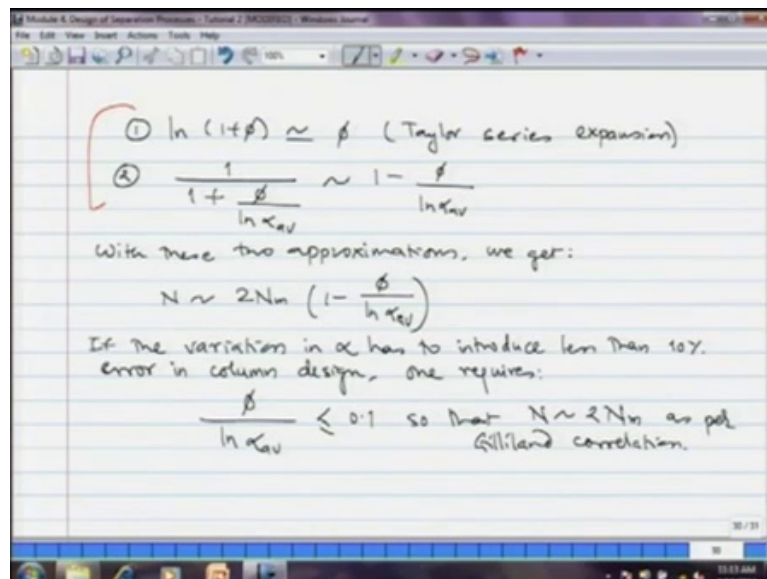 Module & Design of Separation Processes - Tutorial 2 [MODIFIED] - Windows Journal
File Edit View Insert Actions Tools Help
100%
① ln (1+ø) ≃ ø (Taylor series expansion)
② 1 / (1 + ø / ln αav) ~ 1 - ø / ln αav
With these two approximations, we get:
N ~ 2Nm (1 - ø / ln αav)
If the variation in α has to introduce less than 10%
error in column design, one requires:
ø / ln αav ≤ 0.1 so that N ~ 2Nm as per
Gilliland correlation.
30/31
30
11:13 AM